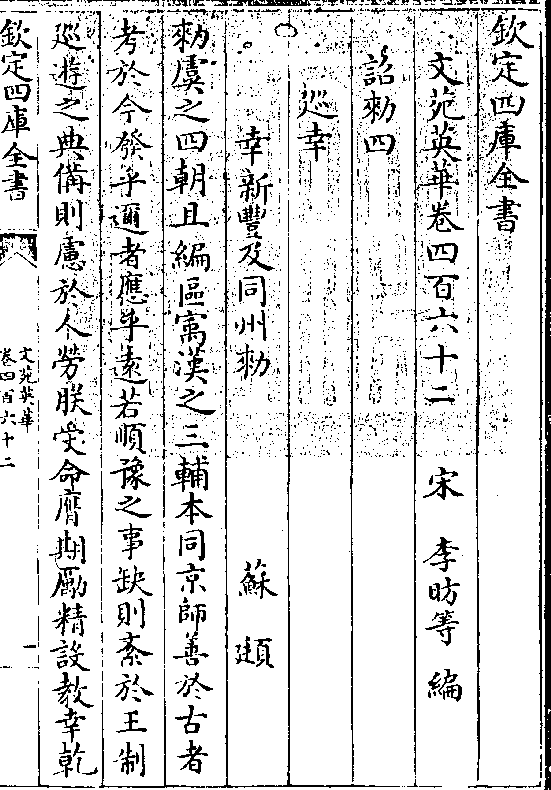 欽定四庫全書
文苑英華卷四百六十二　宋　李昉等　編
詔勅四
巡幸
幸新豐及同州勅　蘇頲
勅虞之四朝且編區寓漢之三輔本同京師善於古者
考於今發乎邇者應乎遠若順豫之事缺則紊於王制
巡遊之典備則慮於人勞朕受命膺期勵精設教幸乾
欽定四庫全書
文苑英華
卷四百六十二
一